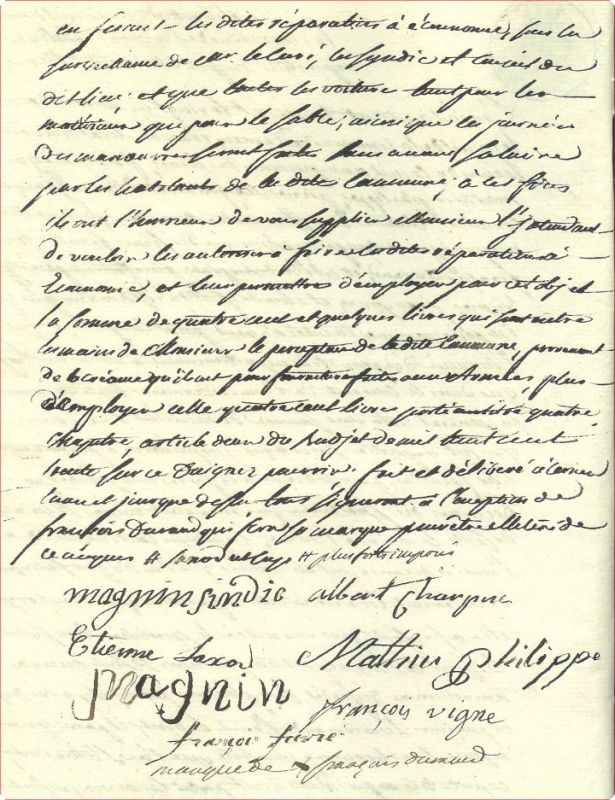 en feront les dites réparations à économie, sous la
surveillance de   le curé, le syndic et conseil du
dit lieu et que toutes les voitures tant pour les
matériaux que pour le sable, ainsi que les journées
des manœuvres seront faites sans aucun salaire
par les habitants de la dite Commune, à les fins
ils ont l'honneur de vous supplier Monsieur l'Intendant
de vouloir les autoriser à faire les dites réparations à
Economie, et leur permettre d'employer pour cet objet
la somme de quatre cent et quelques livres qui sont entre
les mains de Monsieur le percepteur de la dite Commune, provenant
de la créance qu'ils ont pour fourniture faites aux Armées, plus
d'employer celle quatre cent livres portée au titre quatre
chapitre, article deux du Budjet de mil huit cent
trente sur ce Daignez pourvoir. fait et délibéré à
an et jour que dessus tous signeront à l'exception de
françois Durand qui fera sa marque pour être illétéré de
ce  #   # plus forts imposés
magnin sindic albert Charpin
Etienne   Mathieu Philippe
magnin
françois vigne
françoi favre
marque de x françois durand